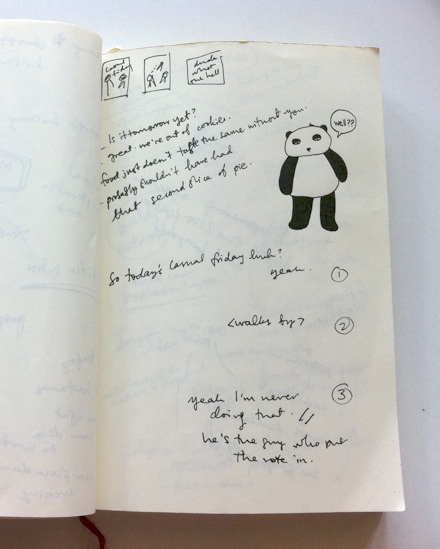 casual
friday
dude
what
the hell
- Is it tomorrow yet?
- great. we're out of cookie.
food just doesn't taste the same without you.
- probably shouldn't have had
that second slice of pie.
Well??
So today's casual friday huh?
yeah. 1
<walks by> 2
yeah I'm never 3
doing that. //
he's the guy who put
the note in.